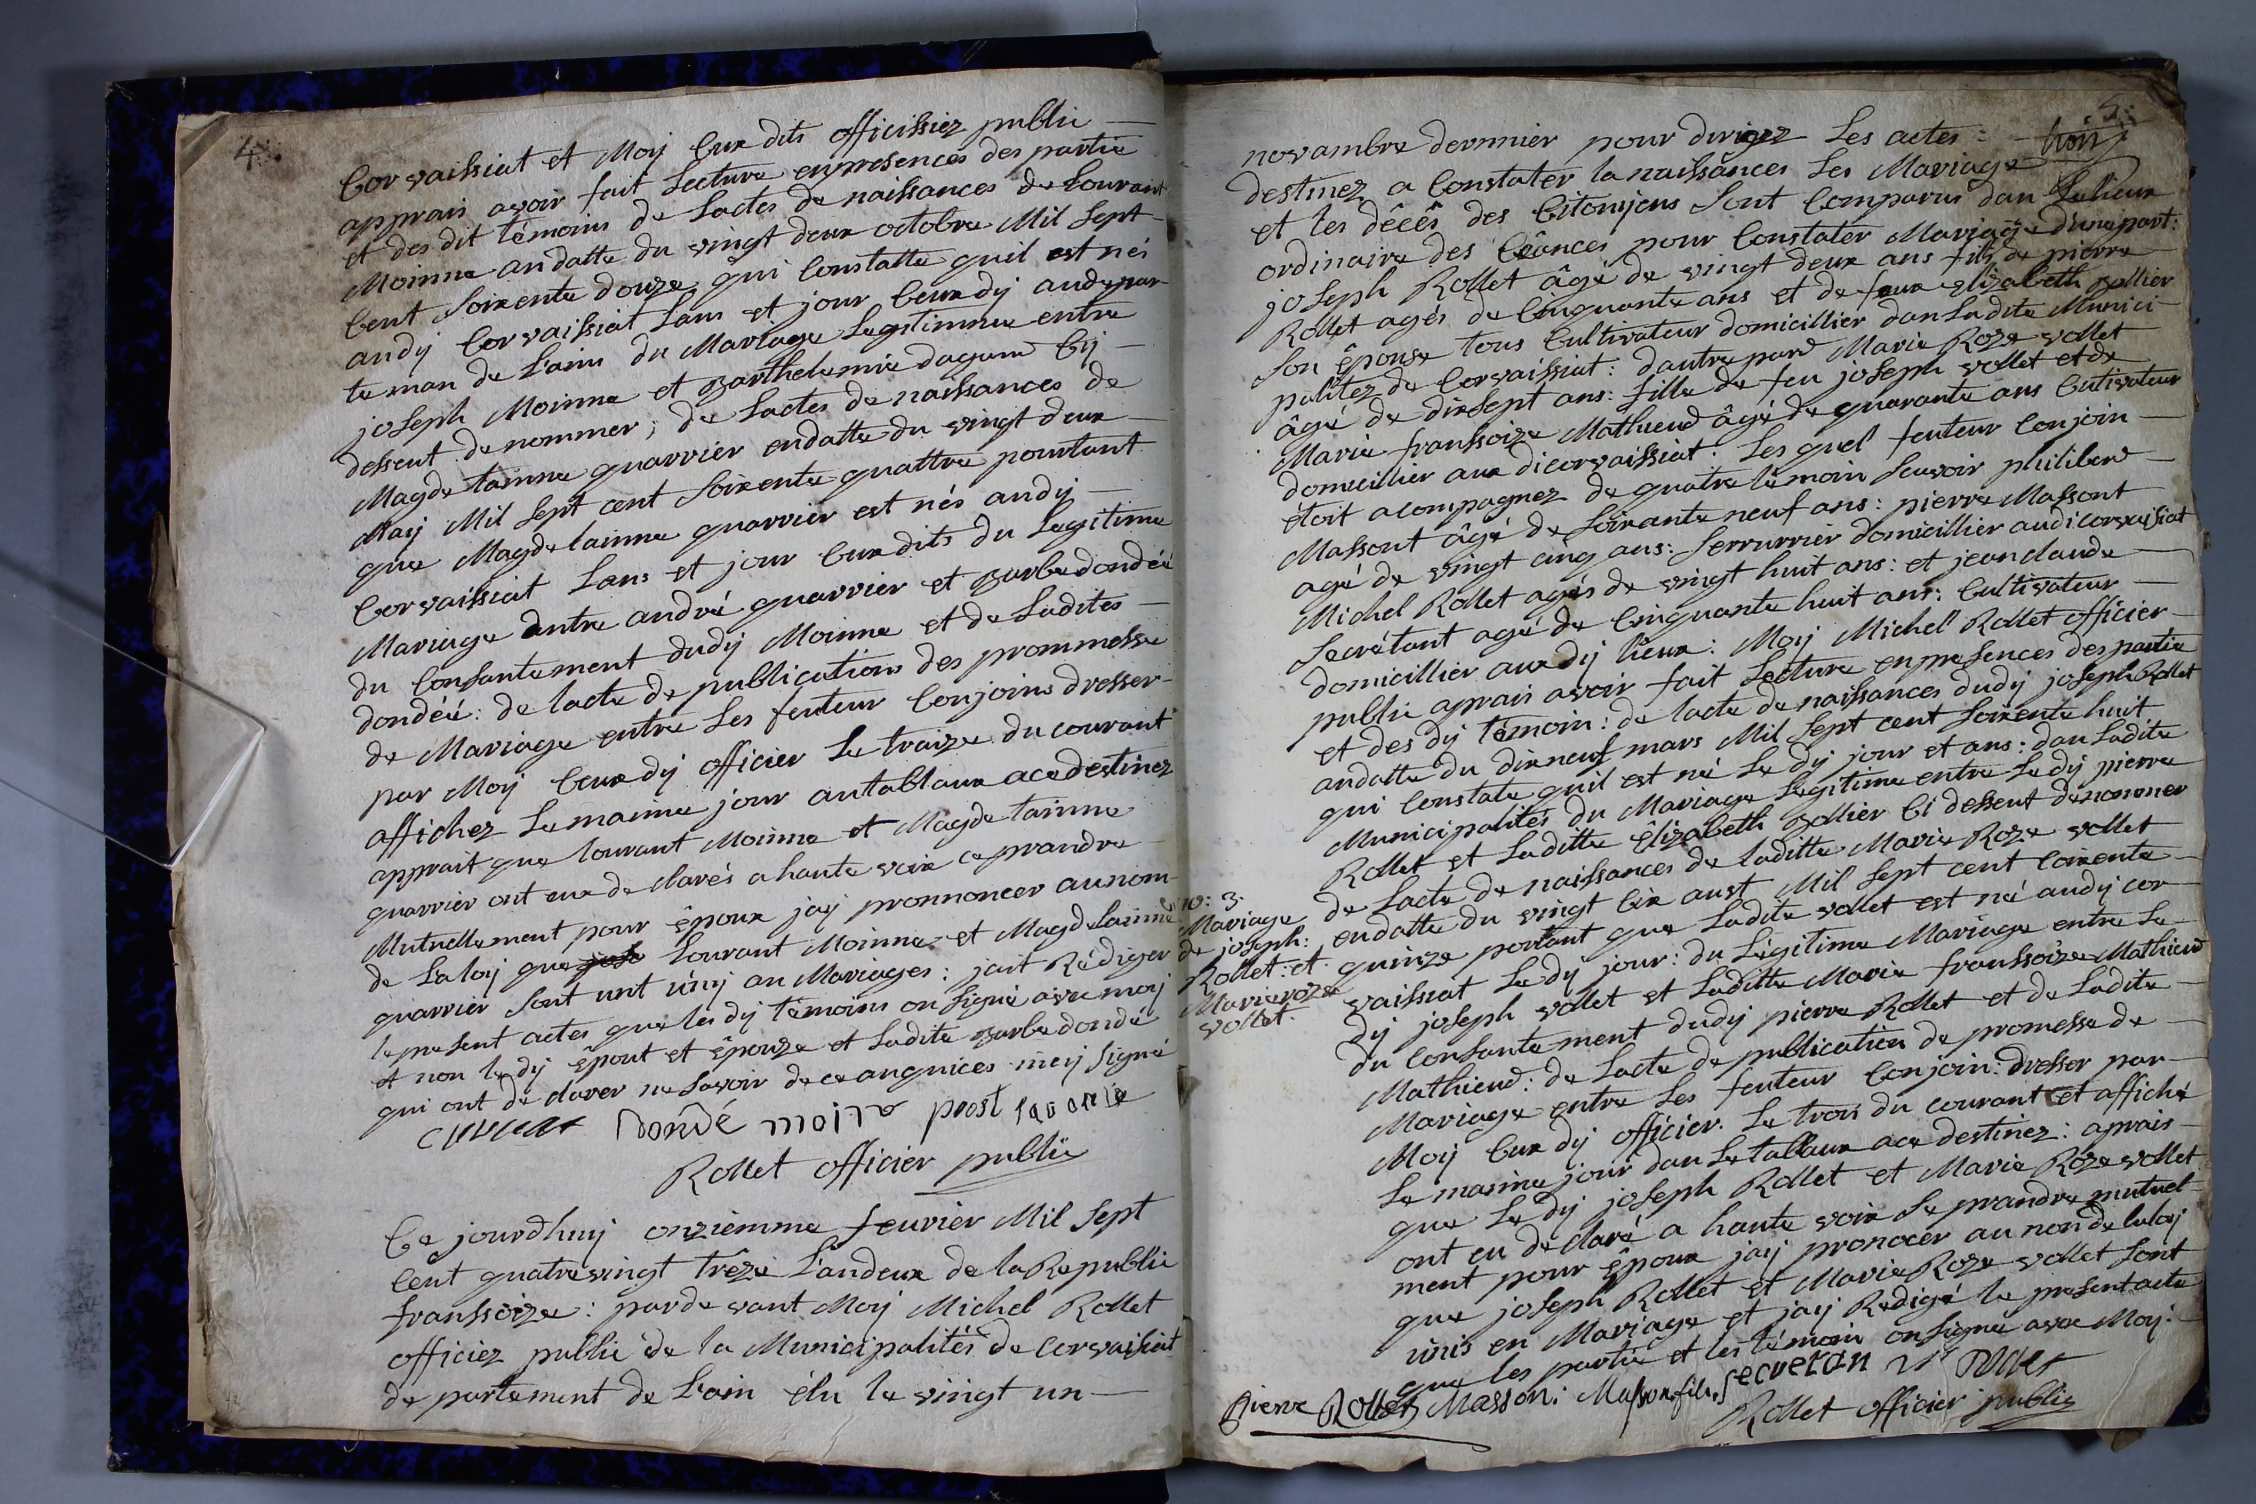 4.
Corvaissiat et Moij Cux dits officissiez public
apprais avoir fait Lecture enpresences des partie
et des dit témoins de Lactes de naissances de Lourant
Moinne andatte du vingt deux octobre Mil Sept
Cent Soixente douze qui Constatte quil est nés
andij Corvaissiat Lans et jour Ceuxdij audepar
teman de Lains du Mariage Legitimme entre
joseph Moinne et Barthelemie dagum Cij
dessent denommer; de Lactes de naissances de
Magdelainne quarrier endatte du vingt deux
May Mil Sept cent Soixente quattre pourtant
que Magdelainne quarrier est nés andij
Corvaissiat Lans et jour Cuxdits du Legitime
Mariage antre andré quarrier et Barbe dondéé
du Consantement dudij Moinne et de Ladites
dondéé: de lacte de publications des prommesse
de Mariage entre Les feuteur Conjoins dresser
par Moij Ceuxdij officier Le traize du courant
affichez Le maime jour autablaux ace destinez
apprait que lourant Moinne et Magdelainne
quarrier ont eux declarés a haute voix ceprandre
Mutuellement pour êpoux jaij pronnoncer aunom
de Laloij que Lourant Moinne et Magdelainne
quarrier Sont unt ûnij an Mariages: jait Rédiger
lepresent actes que lesdij témoins on Signé avec moij
et non ledij êpout et êpouze et Ladite Barbe dondé
qui ont déclarer ne Savoir de ce anquices meij Signé
Dondé moine prost
Rollet officier public
Ce jourdhuij onziemme feuvier Mil Sept
Cent quatrevingt trêze Landeux de la Republic
franssoize: pardevant Moij Michel Rollet
officiez public de la Municipalités de Corvaissiat
departement de Lain élu le vingt un
5.
novambre dernnier pour dirigez Les actes:
destinez a Constater la naissânces Les Mariage
et les dêcês des Citonijens Sont Comparus dan Lelieux
ordinaire des Cêances pour Constater Mariage dunepart:
joseph Rollet âgé de vingt deux ans fils de pierre
Rollet agés de Cinquante ans et de feux elizabeth Bollier
Son êpouse tous Cultivateur domicillier dan Ladite Munici
palitez de Corvaissiat: dautrepard Marie Roze vollet
âgé de dixsept ans: fille de feu joseph vollet et de
Marie franssoize Mathieud âgé de quarante ans Cultivateur
domicillier aux dicorvaissiat. Les quel feuteur Conjoin
étoit acompagnez de quatre témoin Scavoir philiberd
Massont âgé de Soixante neuf ans: pierre Massont
agé de vingt cinq ans: Serrurrier domicillier audicorvaissiat
Michel Rollet agés de vingt huit ans: et jean claude
Secrétant agé de Cinquante huit ans: Cultivateur
domicillier auxdij lieux: Moij Michel Rollet officier
public aprais avoir fait Lecture enpresences des partie
et des dij témoin: de lacte de naissances dudij joseph Rollet
andatte du dixneuf mars Mil Sept cent Soixente huit
qui Constate quil est né Le dij jour et ans: dan Ladite
Municipalités du Mariage Legitime entre Ledij pierre
Rollet et Laditte Êlizabeth Bollier Ci dessent dénommer
de Lacte de naissances de laditte Marie Roze vollet
endatte du vingt Cix aust Mil Sept cent Coixente
quinze portant que Ladite vollet est né audij cor
vaissiat Ledij jour: du Légitime Mariage entre Le
dij joseph vollet et Laditte Marie franssoize Mathieud
du Consantement dudij pierre Rollet et de Ladite
Mathieud: de Lacte de publication de promesse de
Mariage entre Les feuteur Conjoin: dresser par
Moij Cuxdij officier. Le trois du courant et affiché
Le maime jour dan Le tablaux ace destinez: aprais
que Le dij joseph Rollet et Marie Roze vollet
ont eu déclaré a haute voix Se prandre mutuel
ment pour êpoux jaij pronocer au non de laloij
que joseph Rollet et Marie Roze vollet Sont
ûnis en Mariage et jaij Redigé le present acte
que les partie et les témoin on Signé avec Moij.
no: 3.
Mariage
de joseph:
Rollet: et
Marieroze
vollet.
Pierre Rollet Masson: Masson fils Secretan Mel Rollet
Rollet officier public